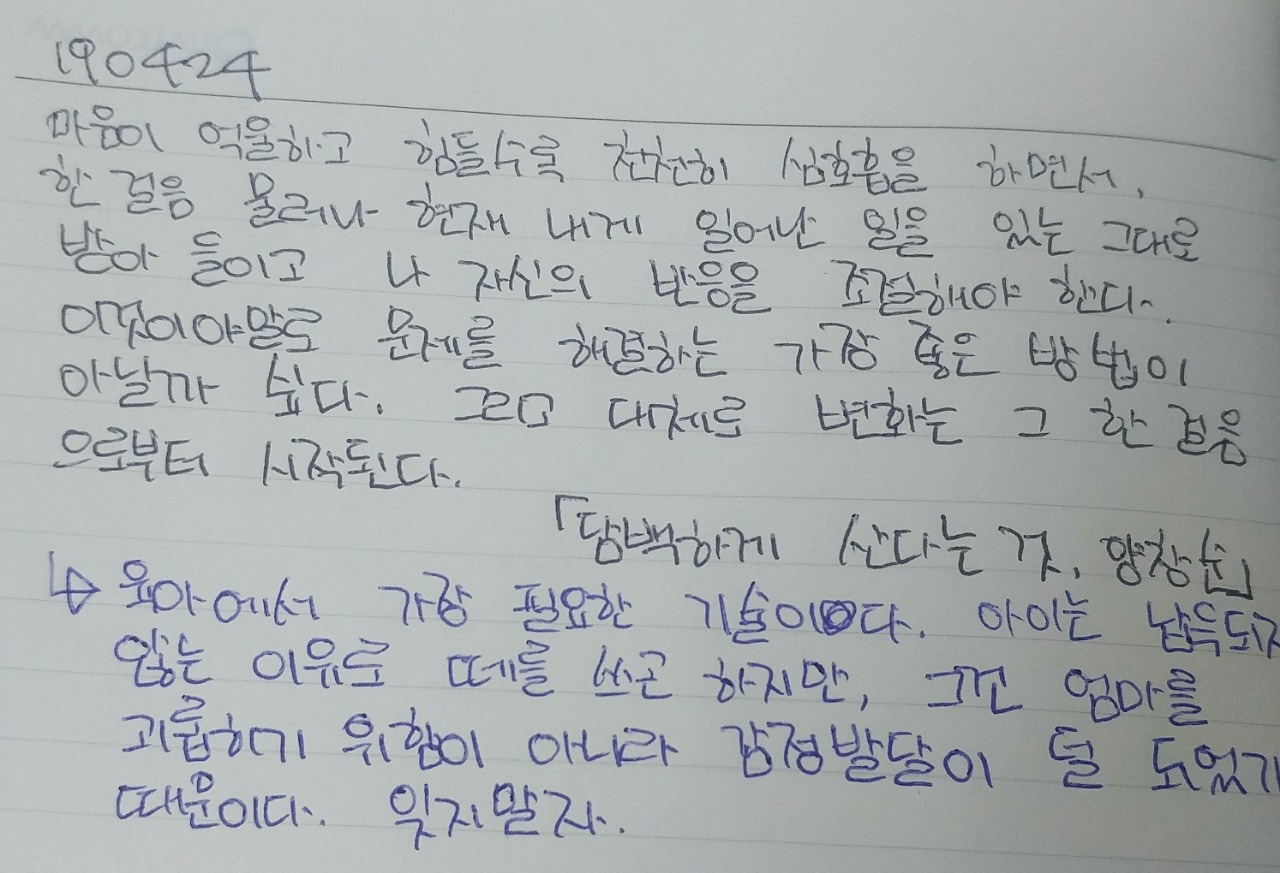 190424
마음이 억울하고 힘들수록 천천히 심호흡을 하면서,
한 걸음 물러나 현재 내게 일어난 일을 있는 그대로
받아 들이고 나 자신의 반응을 조절해야 한다.
이것이야말로 문제를 해결하는 가장 좋은 방법이
아닐까 싶다. 그리고 대체로 변화는 그 한 걸음
으로부터 시작된다.
「담백하게 산다는 것, 양창순」
↳ 육아에서 가장 필요한 기술이다. 아이는 납득되지
않는 이유로 떼를 쓰곤 하지만, 그건 엄마를
괴롭히기 위함이 아니라 감정발달이 덜 되었기
때문이다. 잊지말자.